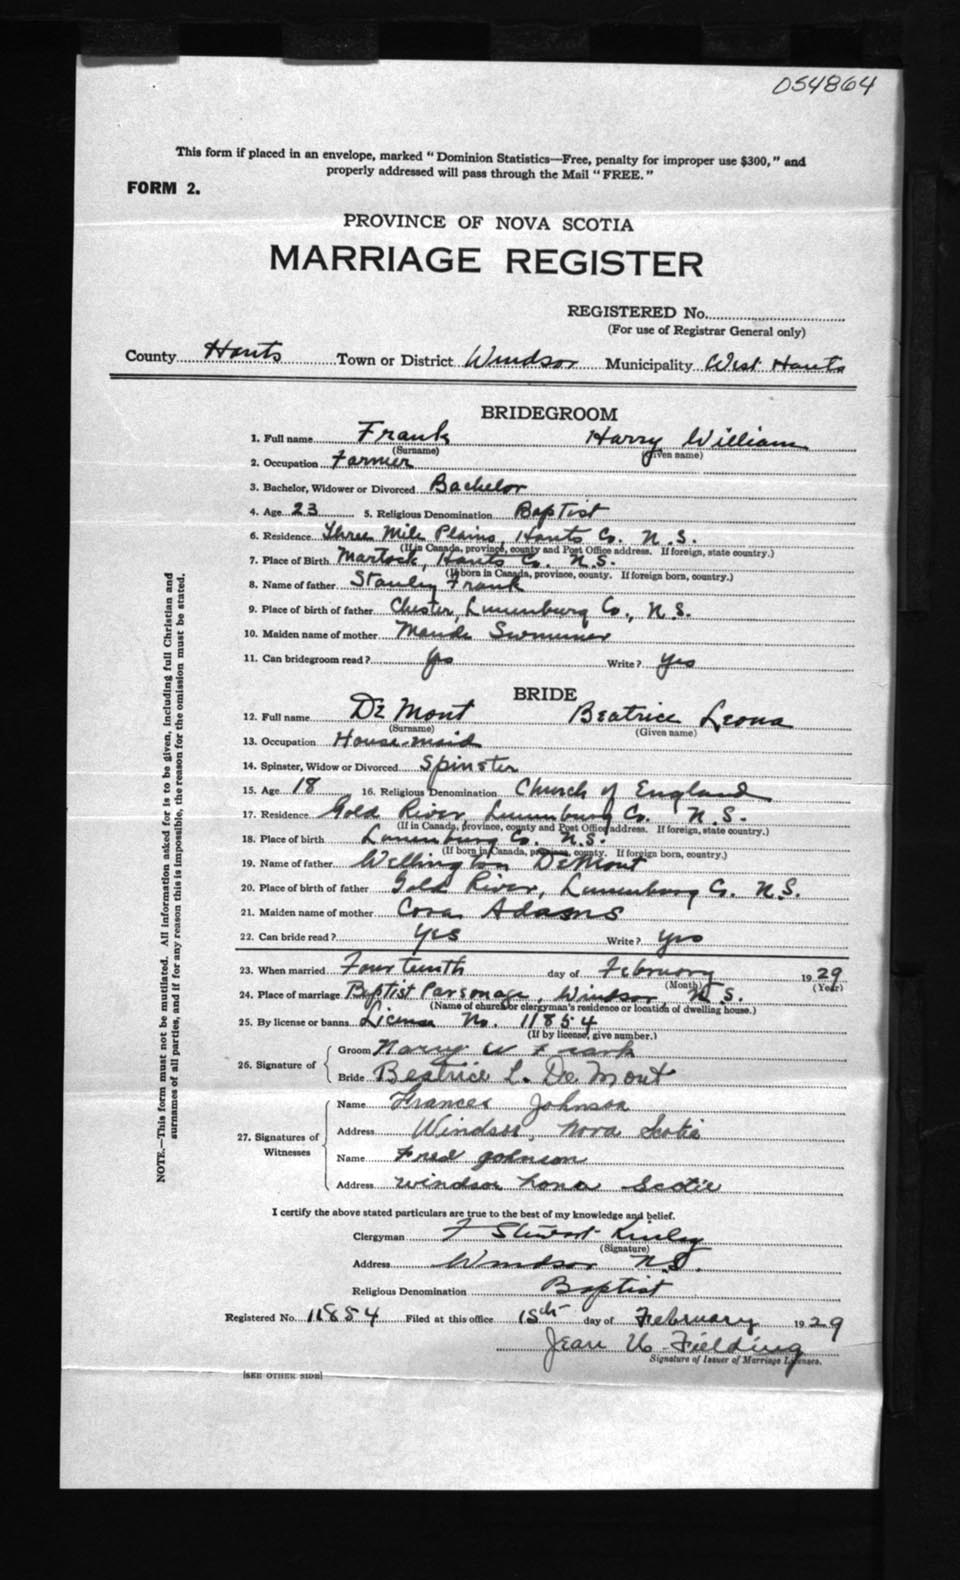 054864
This form if placed in an envelope, marked "Dominion Statistics—Free, penalty for improper use $300," and
properly addressed will pass through the Mail "FREE."
FORM 2.
PROVINCE OF NOVA SCOTIA
MARRIAGE REGISTER
REGISTERED No.
(For use of Registrar General only)
County Hants Town or District Windsor Municipality West Hants
BRIDEGROOM
1. Full name Frank Harry William
(Surname) (Given name)
2. Occupation Farmer
3. Bachelor, Widower or Divorced Bachelor
4. Age 23 5. Religious Denomination Baptist
6. Residence Three Mile Plains, Hants Co. N.S.
(If in Canada, province, county and Post Office address. If foreign, state country.)
7. Place of Birth Martock, Hants Co. N.S.
(If born in Canada, province, county. If foreign born, country.)
8. Name of father Stanley Frank
9. Place of birth of father Chester, Lunenburg Co., N.S.
10. Maiden name of mother Maude
11. Can bridegroom read? Yes Write? Yes
BRIDE
12. Full name De Mont Beatrice Leona
(Surname) (Given name)
13. Occupation House-maid
14. Spinster, Widow or Divorced Spinster
15. Age 18 16. Religious Denomination Church of England
17. Residence Gold River, Lunenburg Co. N.S.
(If in Canada, province, county and Post Office address. If foreign, state country.)
18. Place of birth Lunenburg Co. N.S.
(If born in Canada, province, county. If foreign born, country.)
19. Name of father Wellington DeMont
20. Place of birth of father Gold River, Lunenburg Co. N.S.
21. Maiden name of mother Cora Adams
22. Can bride read? Yes Write? Yes
23. When married Fourteenth day of February 1929
(Month) (Year)
24. Place of marriage Baptist Parsonage, Windsor N.S.
(Name of church or clergyman's residence or location of dwelling house.)
25. By license or banns License No. 11854
(If by license, give number.)
26. Signature of
Groom Harry W Frank
Bride Beatrice L. De Mont
27. Signatures of Witnesses
Name Frances Johnson
Address Windsor, Nova Scotia
Name Fred Johnson
Address Windsor Nova Scotia
I certify the above stated particulars are true to the best of my knowledge and belief.
Clergyman F Stewart Kinley
(Signature)
Address Windsor N.S.
Religious Denomination Baptist
Registered No. 11854 Filed at this office 15th day of February 1929
Jean W Fielding
Signature of Issuer of Marriage Licenses.
[SEE OTHER SIDE]
NOTE.—This form must not be mutilated. All information asked for is to be given, including full Christian and
surnames of all parties, and if for any reason this is impossible, the reason for the omission must be stated.